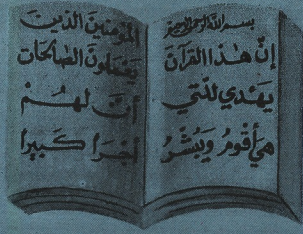 بسم الله الرحمن الرحيم
إنّ هٰذا القرآن
يَهْدِي للّتي
هيَ أقْومُ وَيُبَشّرُ
المؤمنينَ الذينَ
يَعْمَلُونَ الصّالحَات
أنّ لهُمْ
أجْرًا كَبيرًا